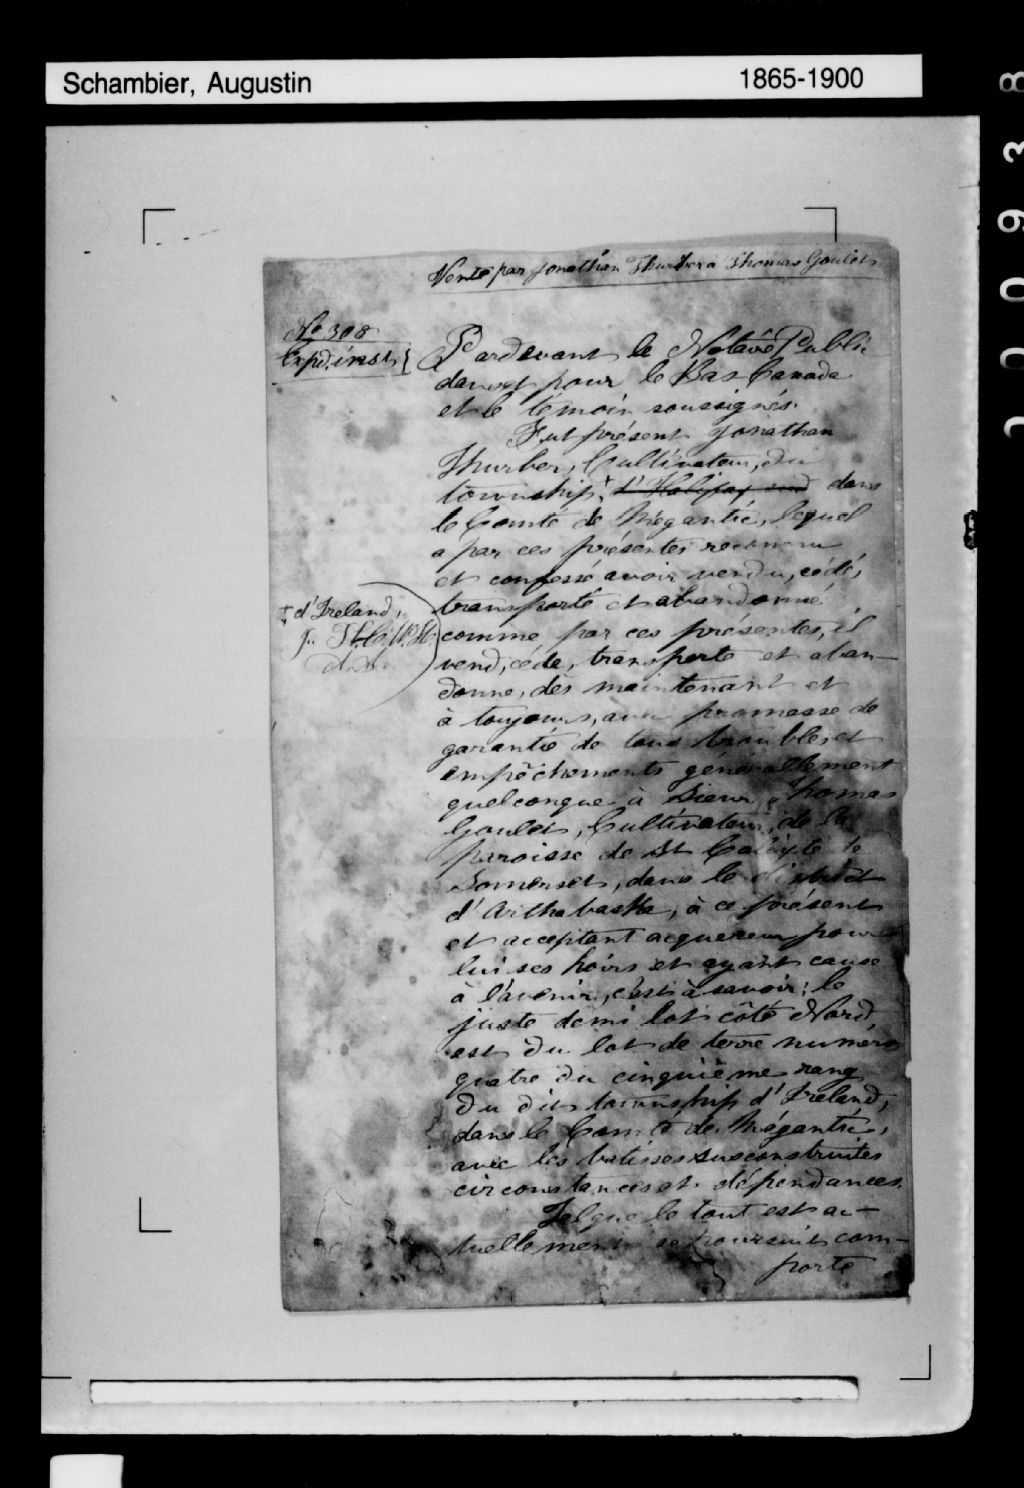 Schambier, Augustin
1865-1900
Vente par Jonathan Thurber a Thomas Goulet
No 308
Expd. inst.
Pardevant le Notaire Public
dans et pour le Bas Canada
et le témoin soussignés.
Fut présent Jonathan
Thurber, Cultivateur, du
township ‡ d'Halifax sud dans
le Comté de Mégantic, lequel
a par ces présentes reconnu
et confessé avoir vendu, cédé,
transporté et abandonné
‡ d'Ireland,
comme par ces présentes, il
vend, cède, transporte et aban-
donne, dès maintenant et
à toujours, avec promesse de
garantie de tous troubles et
empêchements généralement
quelconque à Sieur Thomas
Goulet, Cultivateur, de la
paroisse de St Calixte de
Somerset, dans le district
d'Arthabaska, à ce présent
et acceptant acquereur pour
lui ses hoirs et ayant cause
à l'avenir, c'est à savoir: le
juste demi lot côté Nord,
est du lot de terre numero
quatre du cinquième rang
du dit township d'Ireland,
dans le Comté de Mégantic,
avec les batisses susconstruites
circonstances et dépendances.
Tel que le tout est ac-
tuellement se poursuit com-
porte